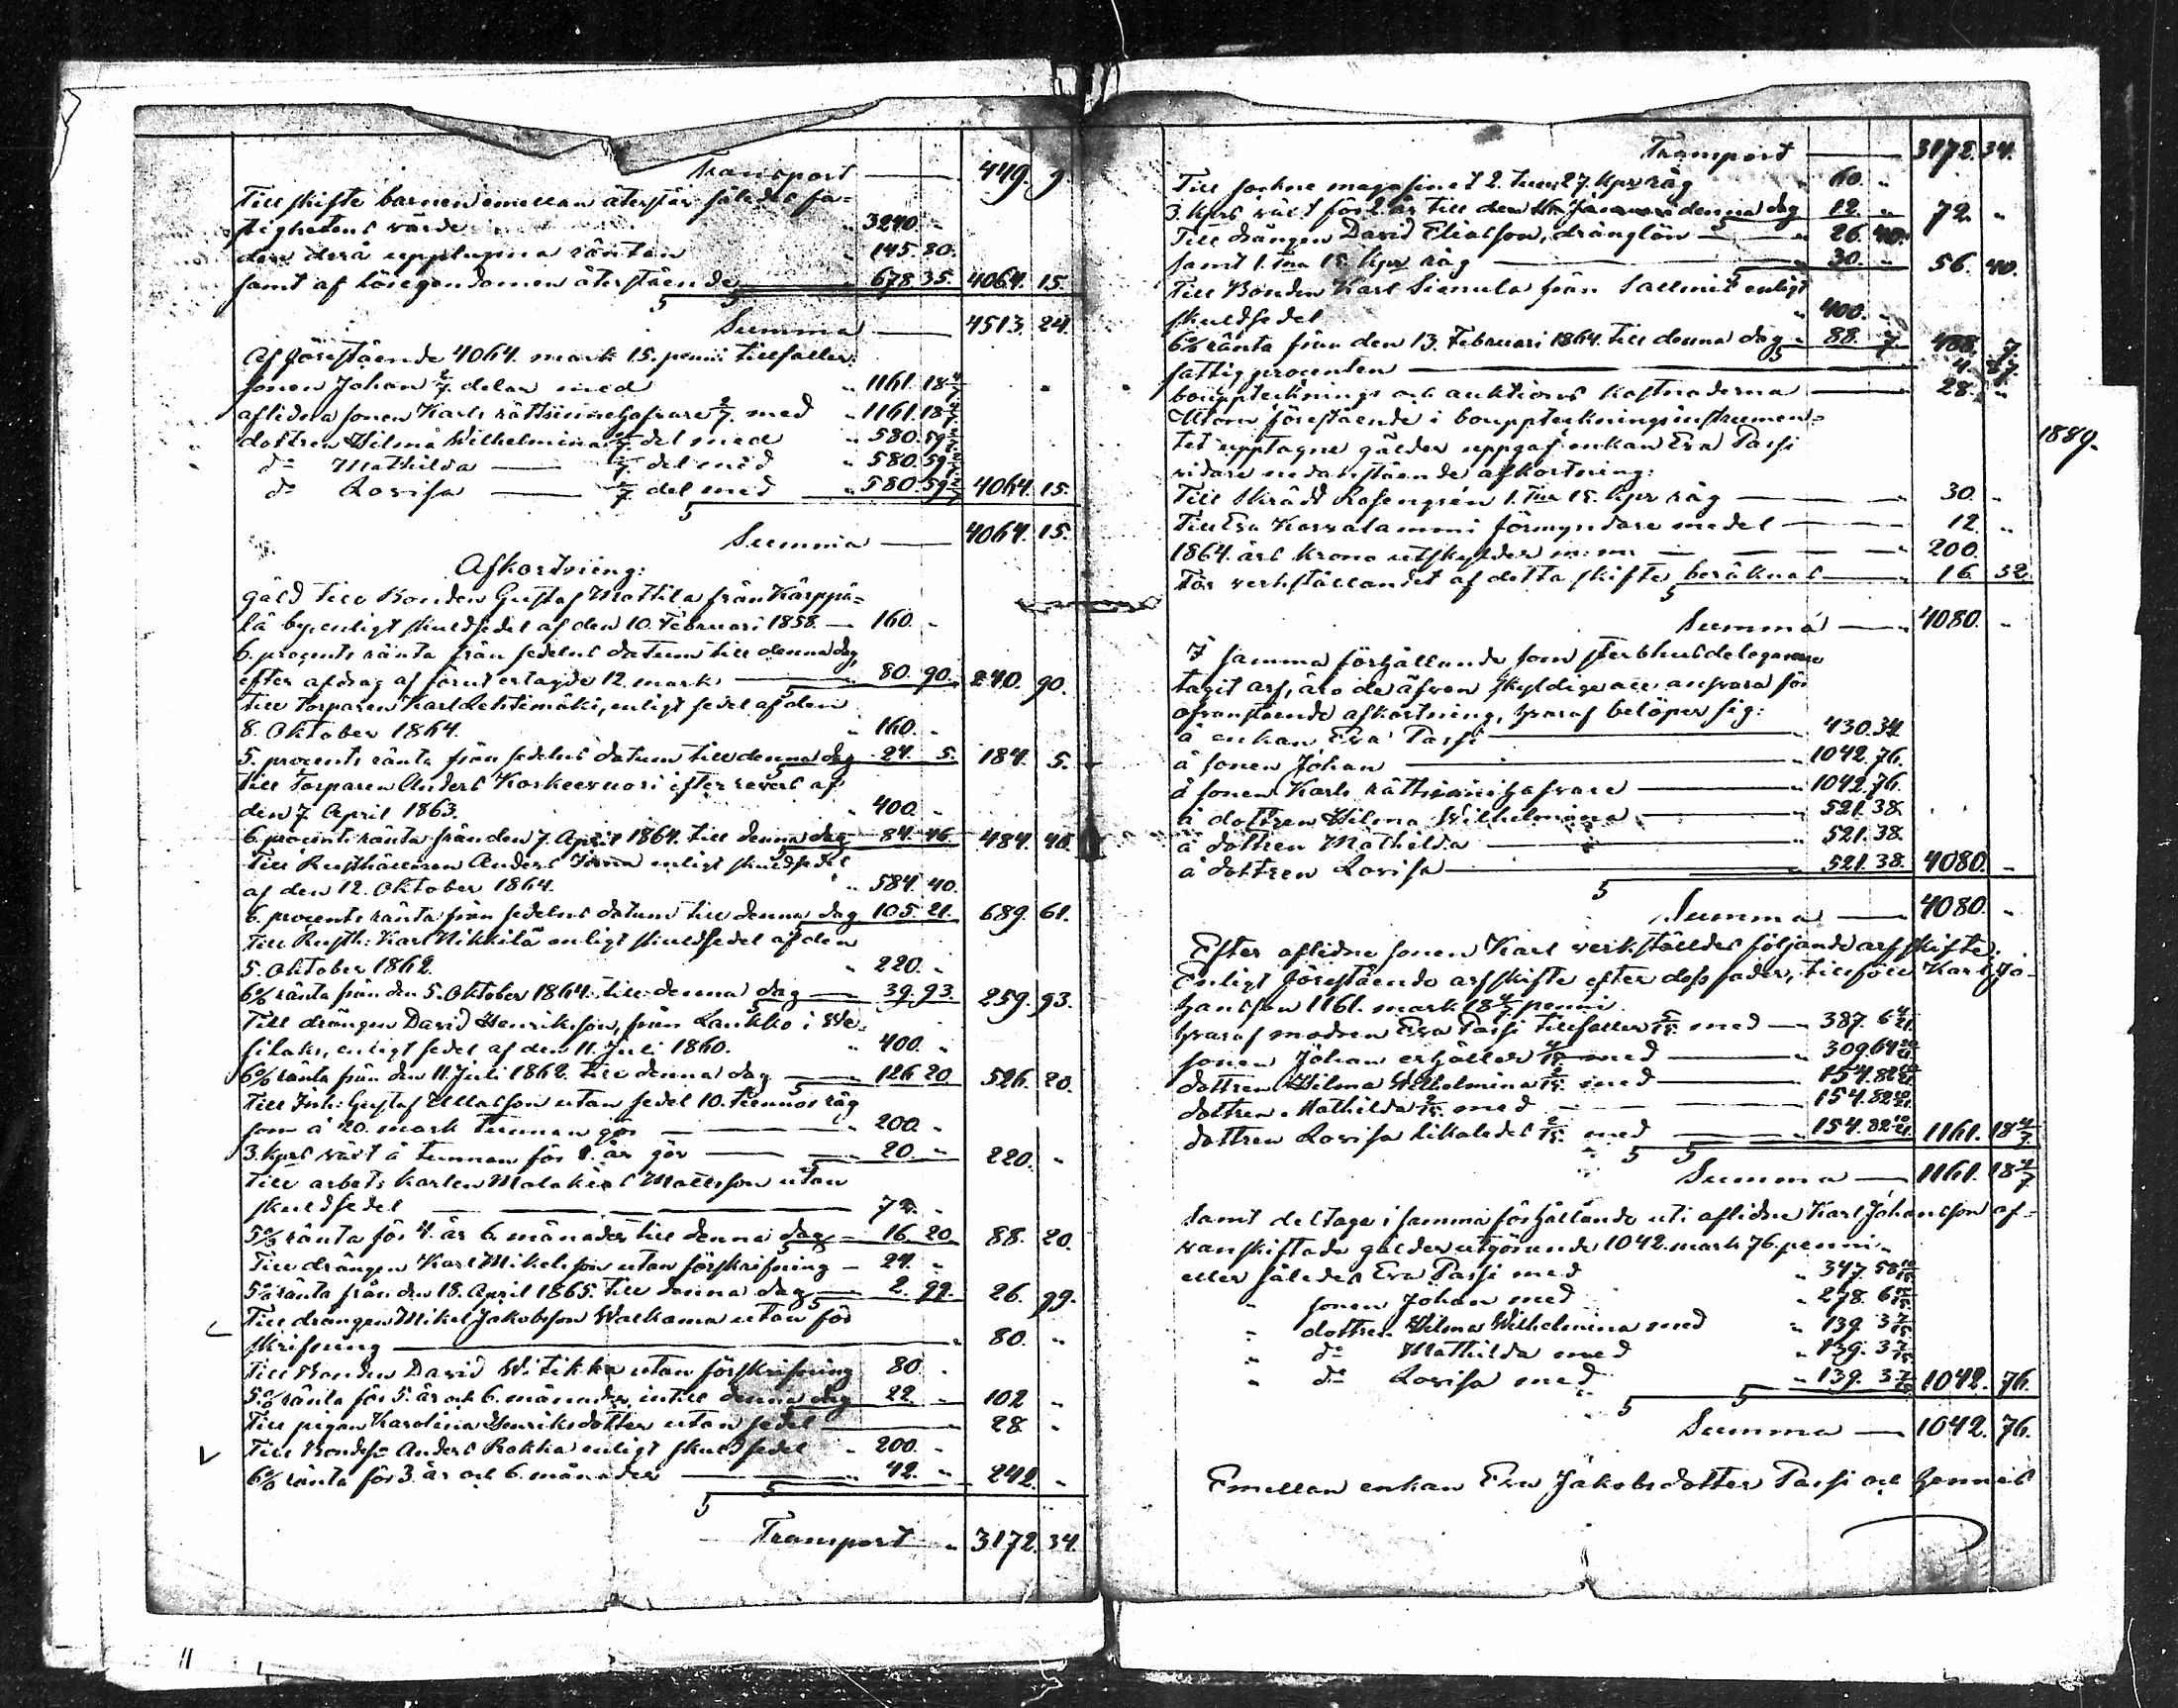 Transport — 449. 9.
Till skifte barnen emellan återstår således fa=
stighetens värde " 3240. "
den derå upplupna räntan " 145. 80.
samt af lösegendomen återstående " 678. 35. 4064. 15.
Summa — 4513. 24.
Af förestående 4064. mark 15. penni tillfaller:
sonen Johan 2/7. delar med " 1161. 18 4/7
aflidna sonen Karls rättsinnehafvare 2/7. med " 1161. 18 4/7
dottren Hilma Wilhelmina 1/7 del med " 580. 59 2/7
do Mathilda — 1/7 del med " 580. 59 2/7
do Lovisa — 1/7 del med " 580. 59 2/7 4064. 15.
Summa — 4064. 15.
Afkortning:
Gäld till Bonden Gustaf Mattila från Kärppä=
lä by, enligt skuldsedel af den 10. Februari 1858. — 160. "
6. procents ränta från sedelns datum till denna dag,
efter afdrag af förut erlagde 12. mark — 80. 90. 240. 90.
Till Torparen Karl Lehtimäki, enligt sedel af den
8. Oktober 1864. " 160. "
5. procents ränta från sedelns datum till denna dag 24. 5. 184. 5.
Till Torparen Anders Koskeevuori efter revers af
den 7. April 1863. " 400. "
6. procents ränta från den 7. April 1864. till denna dag 84. 46. 484. 46.
Till Rusthållaren Anders enligt skuldsedel
af den 12. Oktober 1864. " 584. 40.
6. procents ränta från sedelns datum till denna dag 105. 21. 689. 61.
Till Rusth: Karl Nikkilä enligt skuldsedel af den
5. Oktober 1862. " 220. "
6% ränta från den 5. Oktober 1864. till denna dag — 39. 93. 259. 93.
Till drängen David Henriksson, från Laukko i We=
silaks, enligt sedel af den 11. Juli 1860. " 400. "
6% ränta från den 11. Juli 1862. till denna dag — 126. 20. 526. 20.
Till Inh: Gustaf utan sedel 10. tunnor råg
som à 20. mark tunnan gör — 200. "
3. kprs växt å tunnan för 1. år gör — 20. " 220. "
Till arbets karlen Malakias Mattsson utan
skuldsedel — 72. "
5% ränta för 4. år 6. månader till denna dag — 16. 20. 88. 20.
Till drängen Karl Mikelsson utan förskrifning — 24. "
5% ränta från den 18. April 1865. till denna dag — 2. 99. 26. 99.
Till drängen Mikel Jakobsson Walkama utan för
skrifning — 80. "
Till Bonden David Witikka utan förskrifning 80. "
5% ränta för 5. år och 6. månader, intill denna dag 22. " 102 "
Till pigan Karolina Henriksdotter utan sedel — 28 "
Till Bondes: Anders Rokka enligt skuldsedel " 200. "
6% ränta för 3. år och 6. månader — 42. " 242. "
Transport " 3172. 34.
11
Transport — 3172. 34.
Till sockne magasinet 2. tunn 27. kpr råg " 60. "
3. kprs växt för 2. år till den Januari denna dag 12. " 72. "
Till drängen David Eliasson, dränglön — " 26. 40.
samt 1. tna 15. kpr råg — " 30. " 56. 40.
Till Bonden Karl Sienula från Sallmis enligt
skuldsedel " 400. "
6% ränta från den 13. Februari 1864. till denna dag " 88. 7. 488. 7.
fattigprocenten — 4. 87.
bouppteknings och auktions kostnaderna — 28. "
Utom förestående i bouppteckningsinstrumen=
tet upptagne gälder uppgaf enkan Eva Passi
vidare nedanstående afkortning:
Till Skräddr Rosengrén 1. tna 15. kpr råg — 30. "
Till Eva Korvalammi förmyndare medel — 12. "
1864. års krono utskylder m: m: — 200.
För verkställandet af detta skifte beräknas — 16. 32.
Summa — 4080. "
I samma förhållande som sterbhusdelegarne
tagit arf, äro de äfven skyldige att ansvara för
ofvanstående afkortning, hvaraf belöper sig:
å enkan Eva Passi — 430. 34.
å sonen Johan — 1042. 76.
å sonen Karls rättsinnehafvare — 1042. 76.
å dottren Hilma Wilhelmina — 521. 38.
å dottren Mathilda — 521. 38.
å dottren Lovisa — 521. 38. 4080. "
Summa — 4080. "
1889.
Efter aflidne sonen Karl verkställdes följande arfskifte:
Enligt förestående arfskifte efter dess fader, tillföll Karl Jo=
hansson 1161. mark 18 4/7 penni
hvaraf modren Eva Passi tillfaller 5/15 med — 387. 6 4/21
sonen Johan erhåller 4/15 med — 309. 64 20/21
dottren Hilma Wilhelmina 2/15 med — 154. 82 10/21
dottren Mathilda 2/15 med — 154. 82 10/21
dottren Lovisa likaledes 2/15 med — 154. 82 10/21 1161. 18 4/7
Summa — 1161. 18 4/7
samt deltage i samma förhållande uti aflidne Karl Johansson af=
vanskiftade gälder utgörande 1042. mark 76. penni "
eller således Eva Passi med " 347. 58 10/15
" sonen Johan med " 278. 6 14/15
" dottren Hilma Wilhelmina med " 139. 3 7/15
" do Mathilda med " 139. 3 7/15
" do Lovisa med " 139. 3 7/15 1042. 76.
Summa — 1042. 76.
Emellan enkan Eva Jakobsdotter Passi och hennes